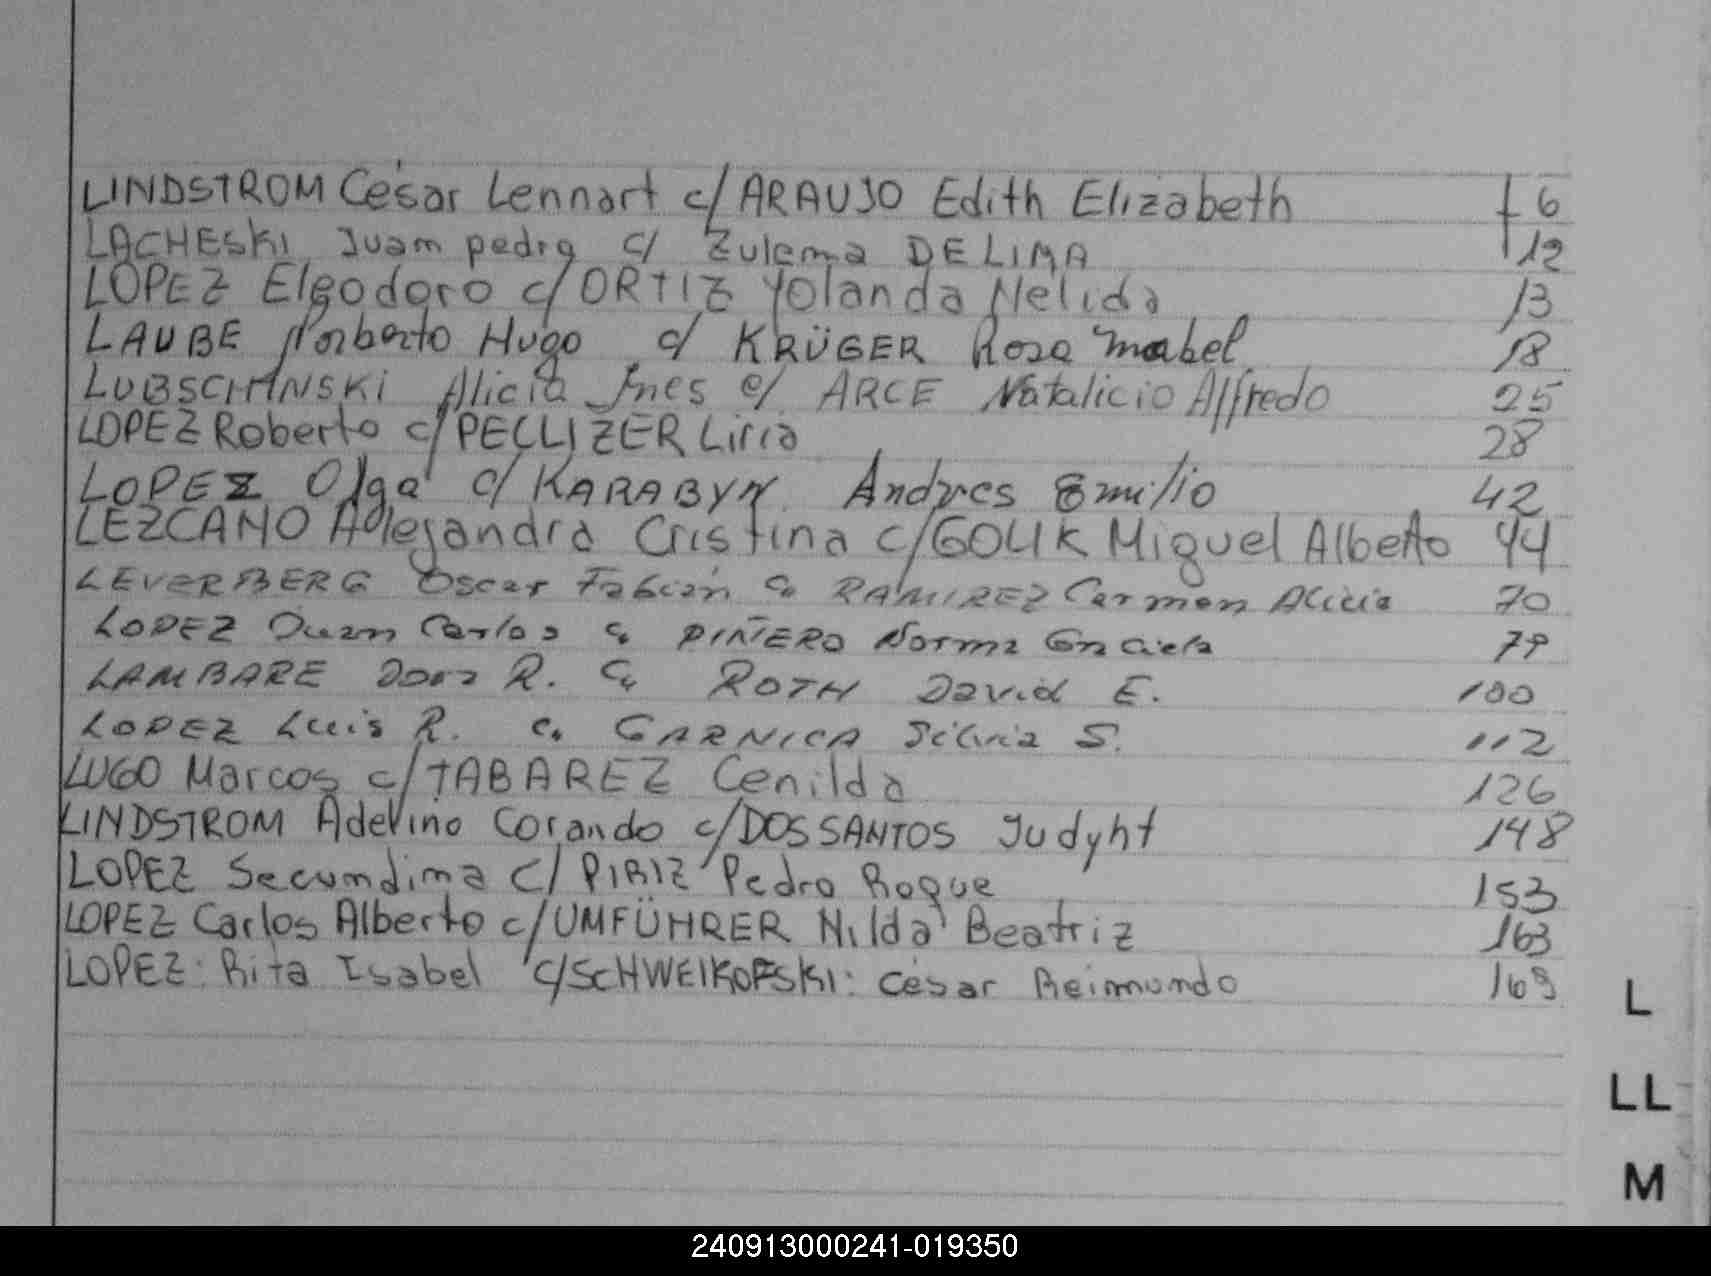 LINDSTROM César Lennart c/ ARAUJO Edith Elizabeth 6
LACHESKI Juam pedro c/ Zulema DE LIMA 12
LOPEZ Eleodoro c/ ORTIZ Yolanda Nelida 13
LAUBE Norberto Hugo c/ KRÜGER Rosa Mabel 18
LUBSCHINSKI Alicia Ines c/ ARCE Natalicio Alfredo 25
LOPEZ Roberto c/ PELLIZER Liria 28
LOPEZ Olga c/ KARABYN Andres Emilio 42
LEZCANO Alejandra Cristina c/ GOLIK Miguel Alberto 44
LEVERBERG Oscar Fabián c. RAMIREZ Carmen Alicia 70
LOPEZ Juan Carlos c. PIÑERO Norma Graciela 79
LAMBARE Dora R. c. ROTH David E. 100
LOPEZ Luis R. c. GARNICA Silvia S. 112
LUGO Marcos c/ TABAREZ Cenilda 126
LINDSTROM Adelino Corando c/ DOS SANTOS Judyht 148
LOPEZ Secundima c/ PIRIZ Pedro Roque 153
LOPEZ Carlos Alberto c/ UMFÜHRER Nilda Beatriz 163
LOPEZ: Rita Isabel c/ SCHWEIKOFSKI: César Reimundo 169
L
LL
M
240913000241-019350